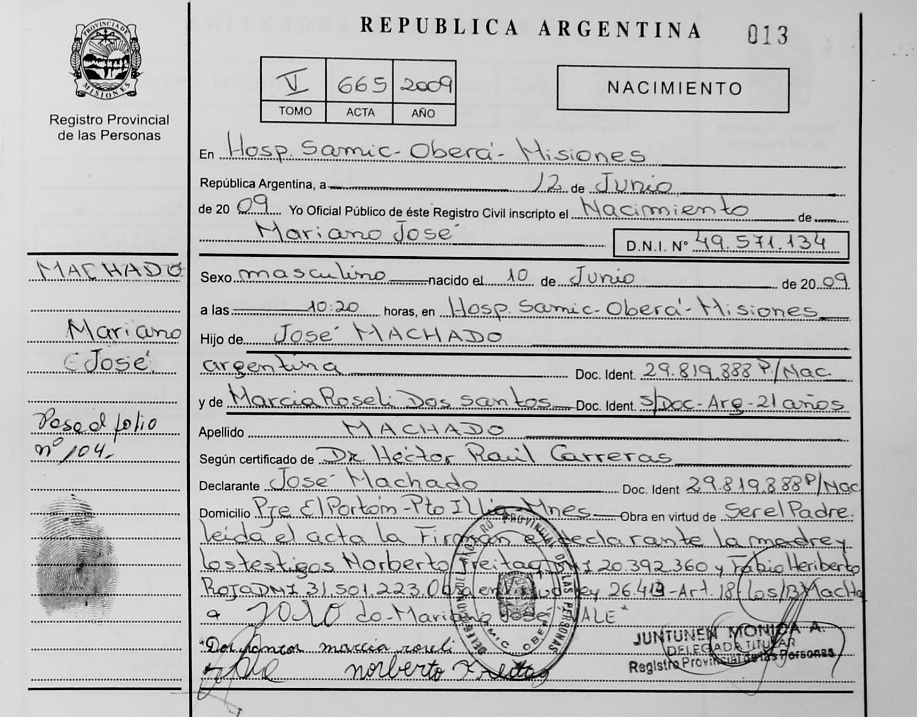 PROVINCIA DE MISIONES
Registro Provincial
de las Personas
REPUBLICA ARGENTINA 013
V 665 2009
TOMO ACTA AÑO
NACIMIENTO
En Hosp. Samic - Oberá - Misiones
República Argentina, a 12 de Junio
de 2009 Yo Oficial Público de éste Registro Civil inscripto el Nacimiento de
Mariano José D.N.I. Nº 49.571.134
MACHADO
Mariano
José
Pasa al folio
nº 104.
Sexo masculino nacido el 10 de Junio de 2009
a las 10:20 horas, en Hosp. Samic Oberá - Misiones
Hijo de José MACHADO
argentina Doc. Ident. 29.819.888 P/Nac
y de Marcia Roseli Dos santos Doc. Ident. s/Doc - Arg - 21 años
Apellido MACHADO
Según certificado de Dr. Héctor Raúl Carreras
Declarante José Machado Doc. Ident 29.819.888 P/Nac
Domicilio Pje El Portón - Pto Illia - Mnes. Obra en virtud de Ser el Padre.
leída el acta la Firman el declarante la madre y
los testigos Norberto Freitag DNI 20.392.360 y Fabio Heriberto
ROJA DNI 31.501.223. 26.413 - Art. 18 MacHa
do - Mariano José VALE"
Dos santos marcia roseli
norberto Freitag
DELEGACION DEL REGISTRO PROVINCIAL DE LAS PERSONAS
SAMIC OBERA
JUNTUNEN MONICA A.
DELEGADA TITULAR
Registro Provincial de las Personas